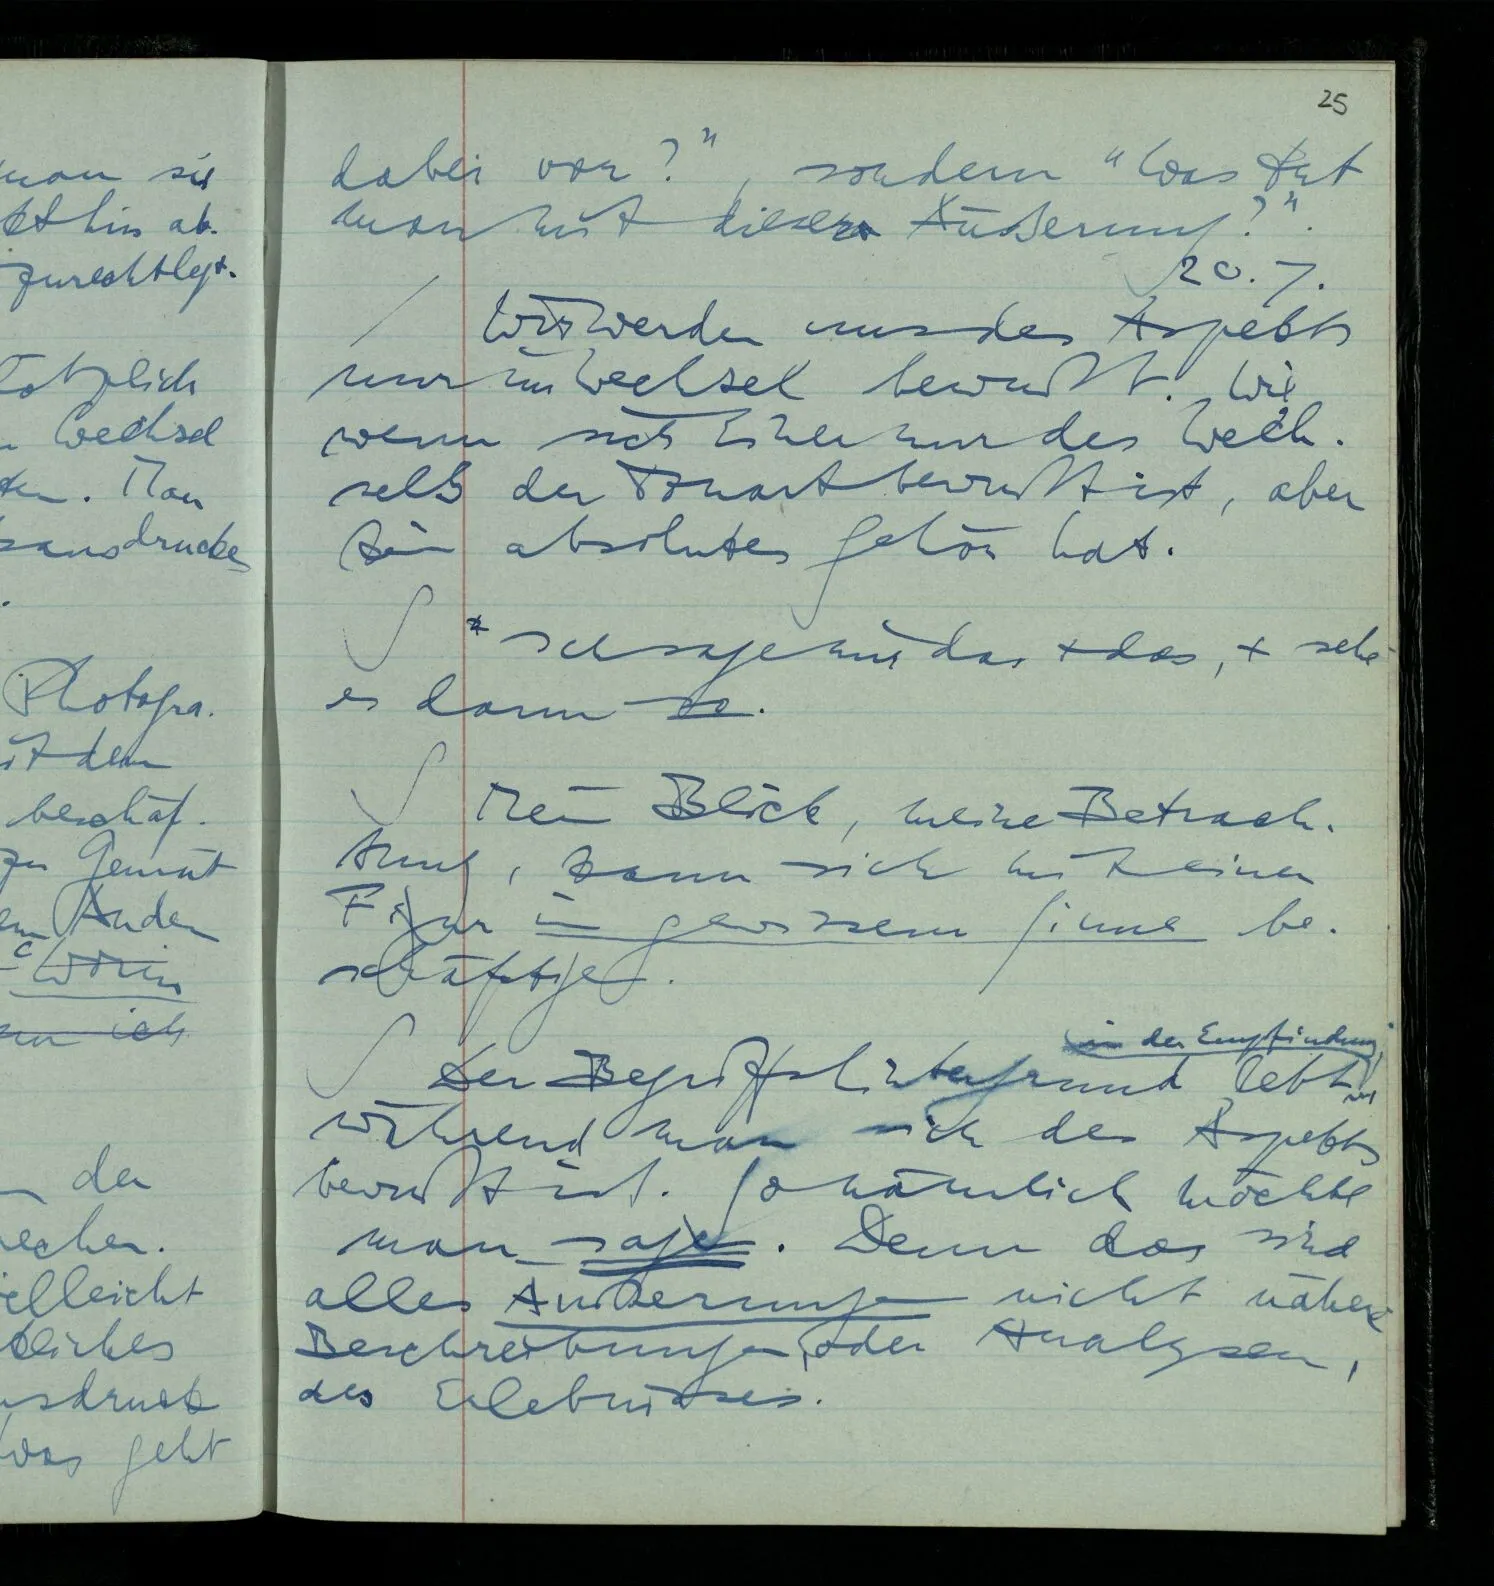 man sie
hin ab-
zurechtlegt.
plich
Wechsel
Man
ausdrucke
Photogra-
it dem
beschäf-
zu Gemüt
Anden
Worin
ich
der
echen.
ielleicht
liches
usdruck
was geht
25
dabei vor?", sondern "Was tut
man mit dieser Äußerung?".
20.7.
/ Wir werden uns des Aspekts
nur im Wechsel bewußt. Wie
wenn sich Einer nur des Wech-
sels der Tonart bewußt ist, aber
kein absolutes Gehör hat.
∫ * Ich sage mir das + das, + sehe
es dann so.
∫ Mein Blick, meine Betrach-
tung, kann sich mit einer
Figur in gewissem Sinne be-
schäftigen.
in der Empfindung,
∫ Der Begriffshintergrund lebt
während man sich des Aspekts
bewußt ist. So nämlich möchte
man sagen. Denn das sind
alles Äußerungen nicht nähere
Beschreibungen, oder Analysen,
des Erlebnisses.